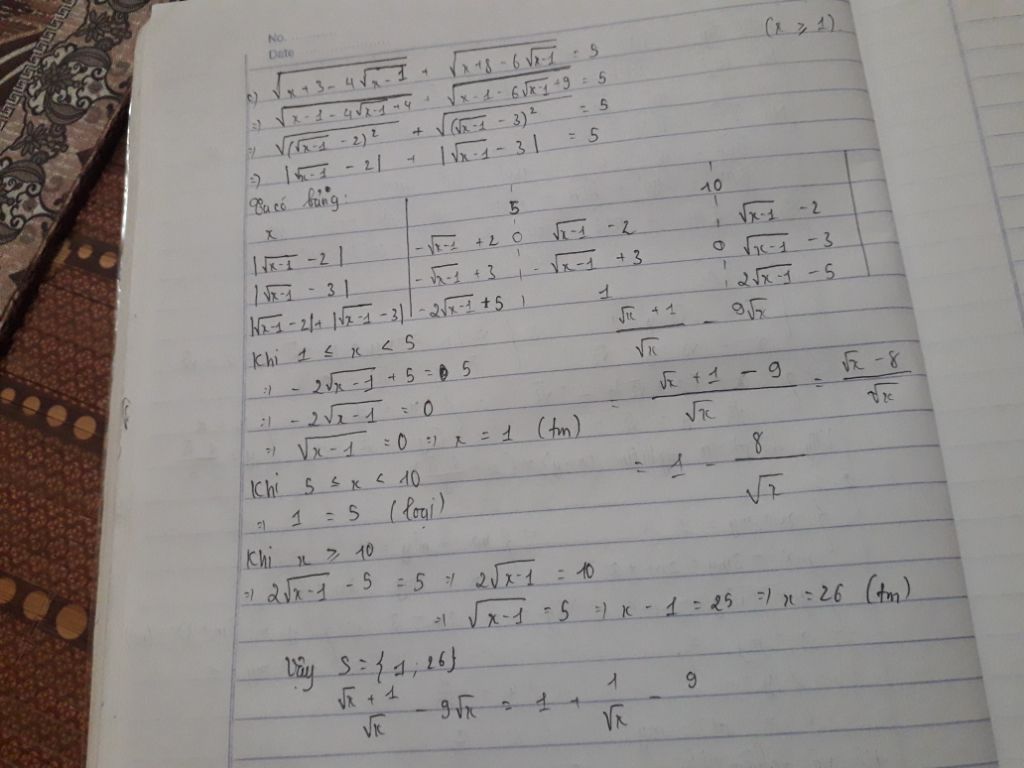 No.
Date
c) √(x+3-4√(x-1)) + √(x+8-6√(x-1)) = 5 (x ≥ 1)
=> √(x-1-4√(x-1)+4) + √(x-1-6√(x-1)+9) = 5
=> √((√(x-1) - 2)²) + √((√(x-1) - 3)²) = 5
=> |√(x-1) - 2| + |√(x-1) - 3| = 5
Ta có bảng:
x 5 10
|√(x-1) - 2| -√(x-1) + 2 0 √(x-1) - 2 √(x-1) - 2
|√(x-1) - 3| -√(x-1) + 3 -√(x-1) + 3 0 √(x-1) - 3
|√(x-1) - 2| + |√(x-1) - 3| -2√(x-1) + 5 1 2√(x-1) - 5
Khi 1 ≤ x < 5
(√x + 1)/√x - 9√x
=> -2√(x-1) + 5 = 5
= (√x + 1 - 9)/√x = (√x - 8)/√x
=> -2√(x-1) = 0
=> √(x-1) = 0 => x = 1 (tm)
= 1 - 8/√x
Khi 5 ≤ x < 10
=> 1 = 5 (loại)
Khi x ≥ 10
=> 2√(x-1) - 5 = 5 => 2√(x-1) = 10
=> √(x-1) = 5 => x - 1 = 25 => x = 26 (tm)
Vậy S = {1; 26}
(√x + 1)/√x - 9√x = 1 + 1/√x - 9